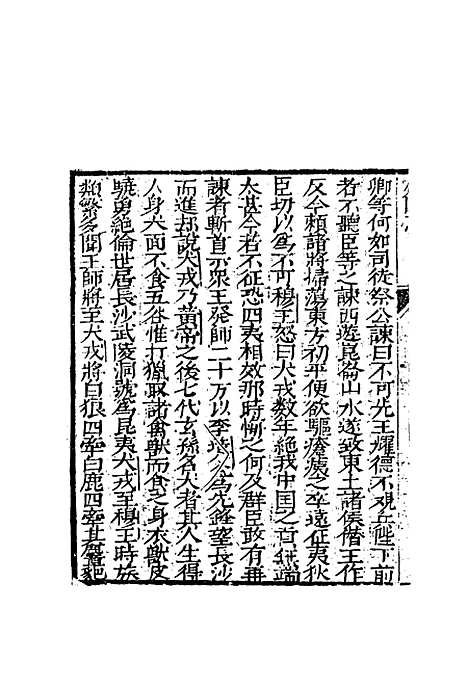 卿等何如司徒祭公諫曰不可先王耀德不観兵陛下前
者不聽臣等之諫西遊崑崙山水遂致東土諸侯僣王作
反今頼諸將掃蕩東方初平便欲驅瘡痍之卒遠征夷狄
臣切以為不可穆王怒曰犬戎数年絶我中国之貢
太甚今若不征恐四夷相效那時慚之何及群臣敢有再
諫者斬首示衆王発師二十万以李為先鋒望長沙
而進却說犬戎乃黄帝之後七代玄孫名犬者其人生得
人身犬面不食五谷惟打獵取諸禽獣而食之身衣獣皮
驍勇絶倫世居長沙武陵洞號為昆夷犬戎至穆王時族
類繁多聞王師將至犬戎將白狼四牽白鹿四牽其